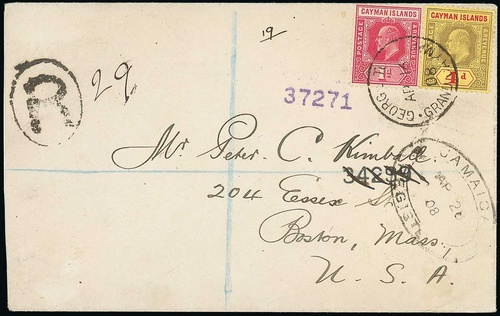 19
CAYMAN ISLANDS
POSTAGE & REVENUE
CAYMAN ISLANDS
R
29
37271
GEORGETOWN GRAND CAYMAN
AP
08
Mr Peter C. Kimball
34299
204 Essex St
Boston, Mass.
U. S. A.
JAMAICA
AP 20
08